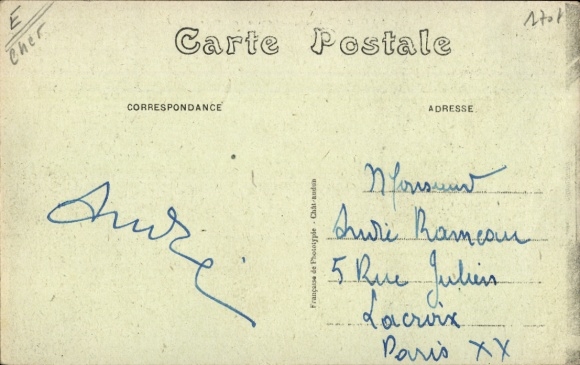 E
Cher
1708
Carte Postale
CORRESPONDANCE
ADRESSE
André
Française de Phototypie - Chât-audun
Monsieur
André Rameau
5 Rue Julien
Lacroix
Paris XX